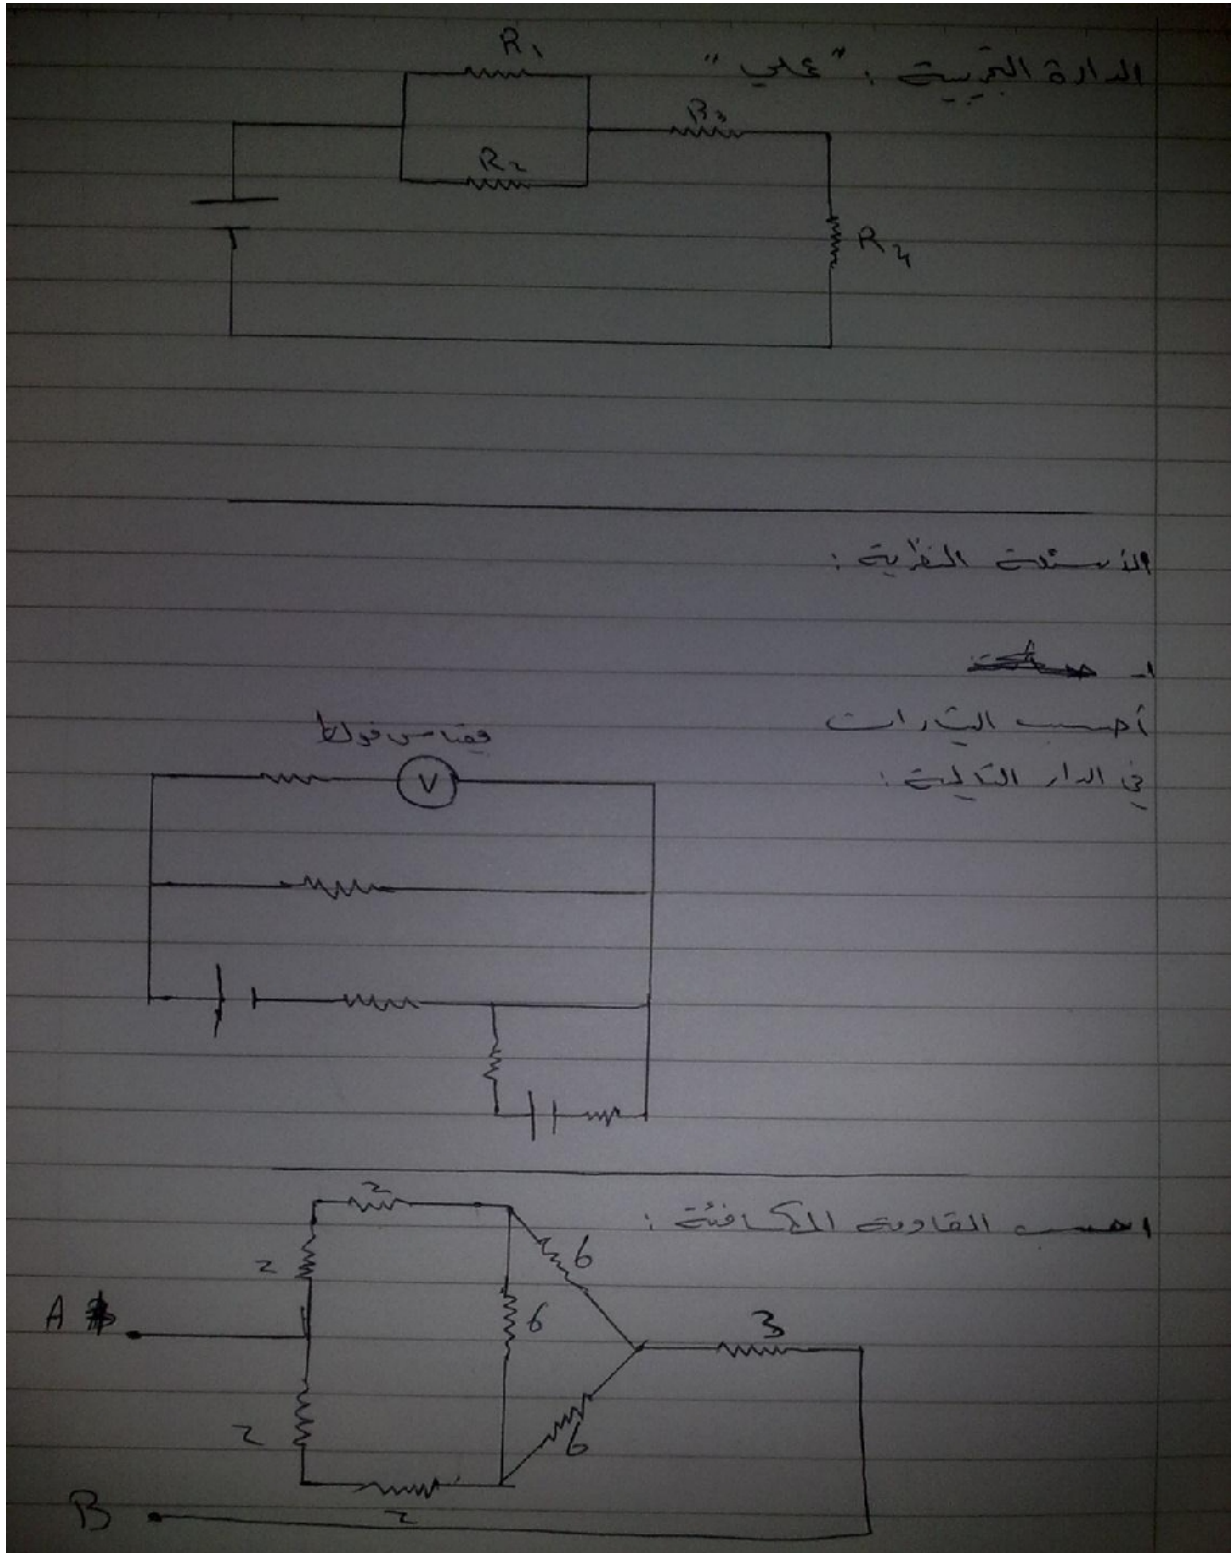 الدارة التجريبية : " عملي "
R1
R2
R3
R4
الأسئلة النظرية :
1-
أحسب التيارات
في الدار التالية :
مقياس فولط
V
احسب المقاومة المكافئة :
2
2
6
6
A
3
2
6
2
B